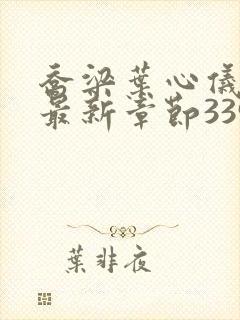 乔梁葉心儀
最新章節339
葉非夜